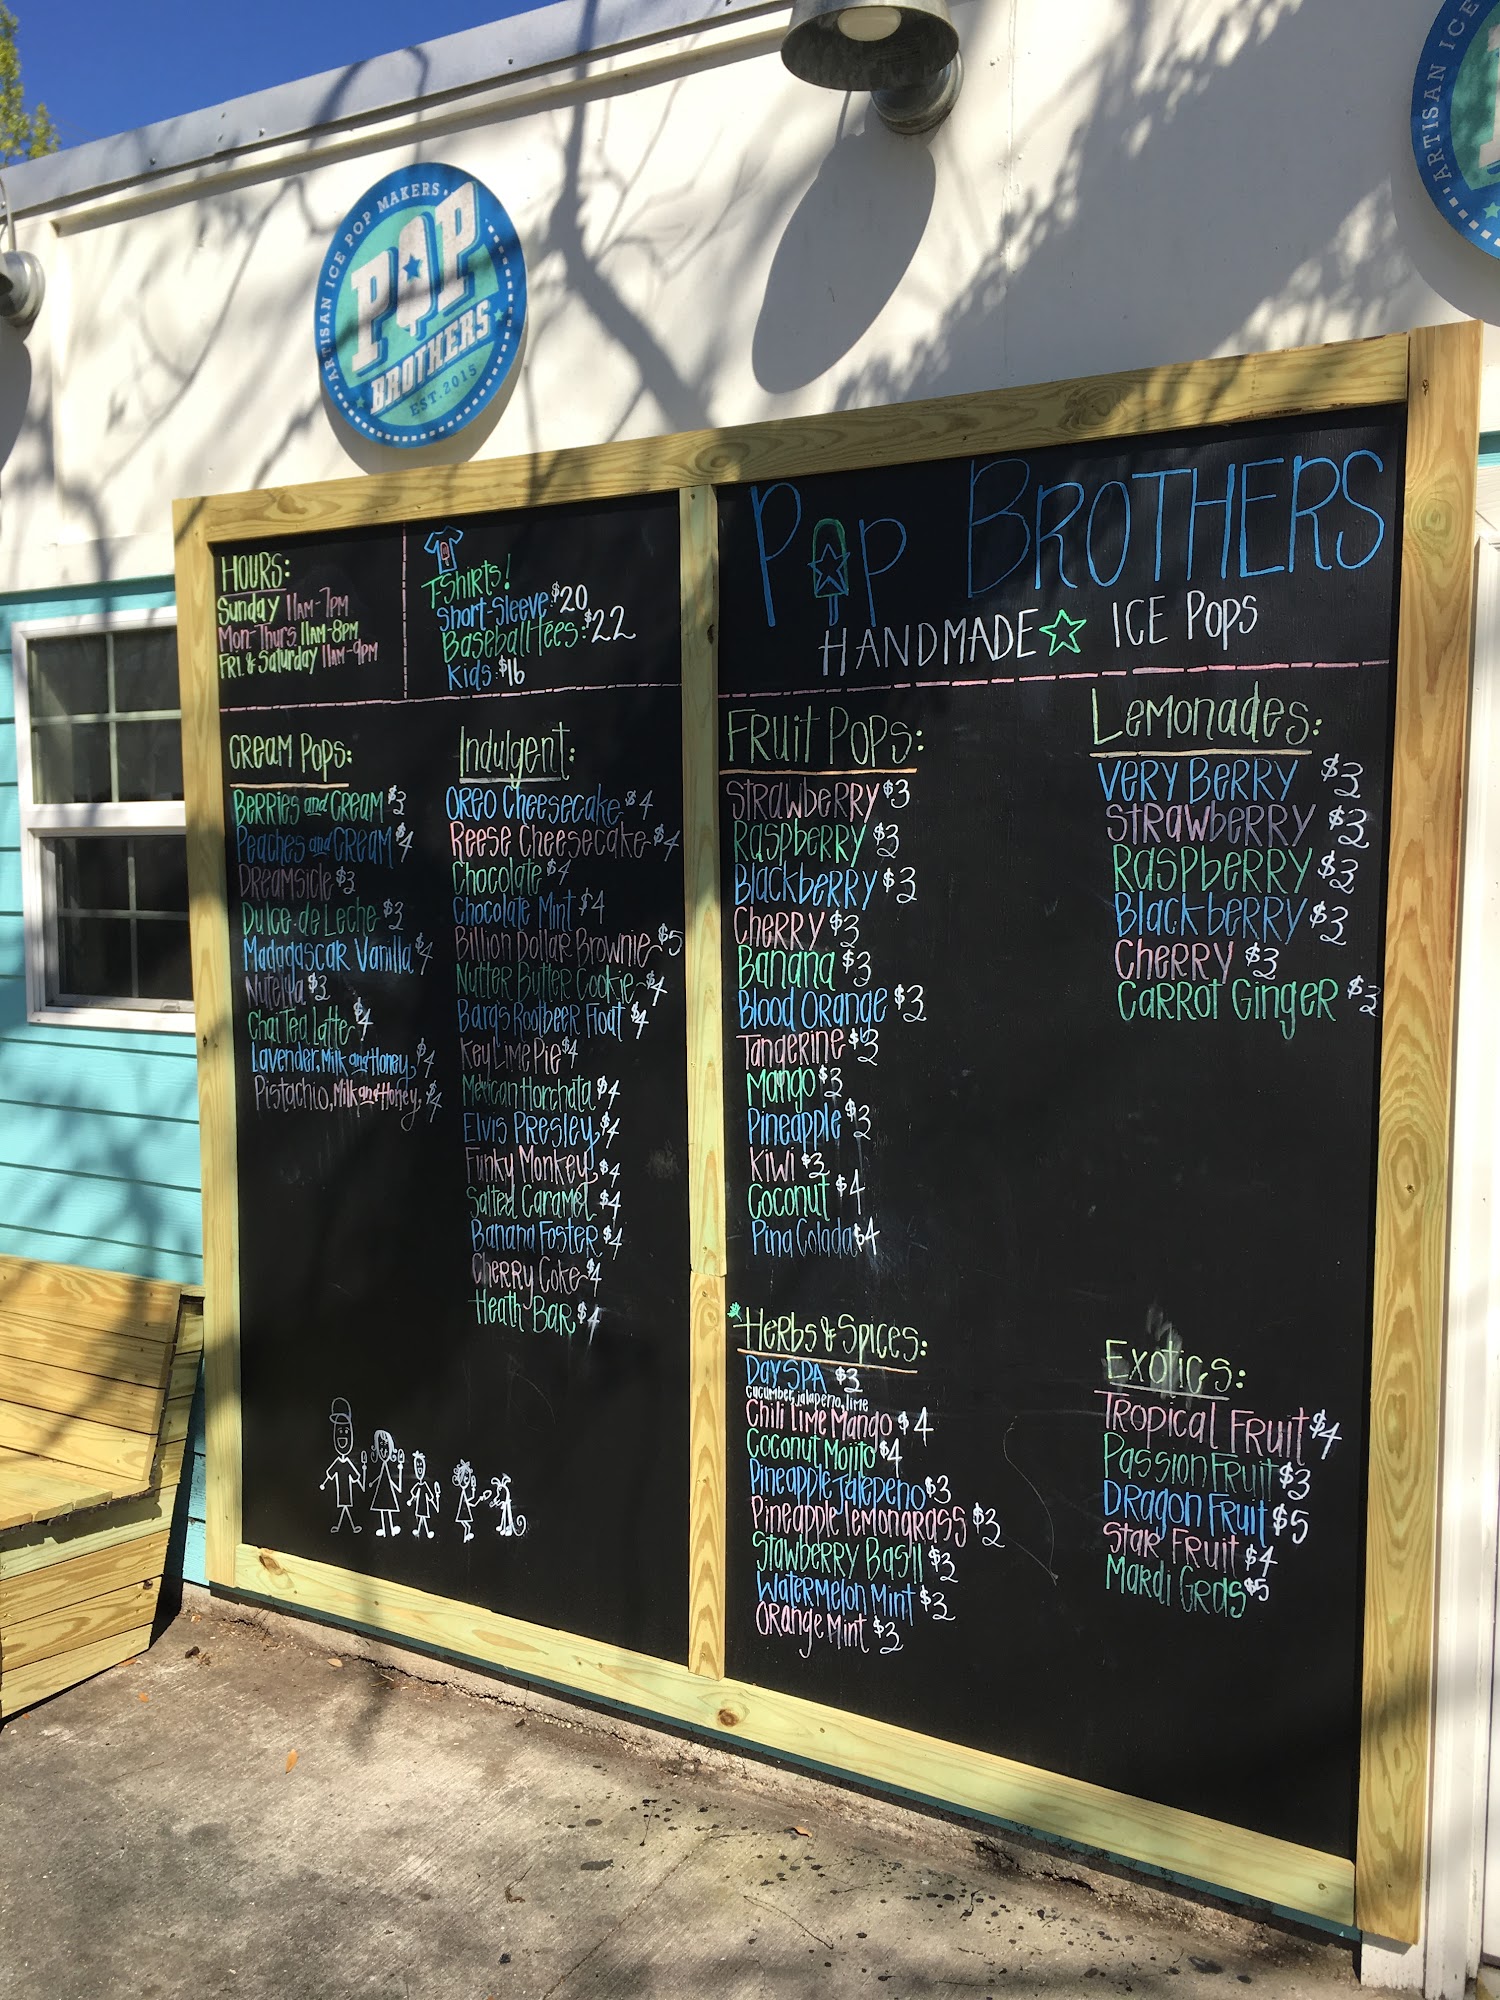 ARTISAN ICE POP MAKERS
POP
BROTHERS
EST. 2015
ARTISAN ICE
HOURS:
Sunday 11AM-7PM
Mon-Thurs 11AM-8PM
FRI. & Saturday 11AM-9PM
T-Shirts!
Short-Sleeve: $20
Baseball Tees: $22
Kids: $16
POP BROTHERS
HANDMADE ICE POPS
CREAM POPS:
BERRIES and CREAM $3
Peaches and CREAM $4
DREAMSICLE $3
Dulce de Leche $3
Madagascar Vanilla $4
Nutella $3
Chai Tea Latte $4
Lavender, Milk and Honey, $4
Pistachio, Milk and Honey, $4
Indulgent:
OREO Cheesecake $4
Reese Cheesecake $4
Chocolate $4
Chocolate Mint $4
Billion Dollar Brownie $5
Nutter Butter Cookie $4
Barqs Rootbeer Float $4
Key Lime Pie $4
Mexican Horchata $4
Elvis Presley $4
Funky Monkey $4
Salted Caramel $4
Banana Foster $4
Cherry Coke $4
Heath Bar $4
FRUIT POPS:
STRAWBERRY $3
RASPBERRY $3
Blackberry $3
CHERRY $3
Banana $3
Blood Orange $3
Tangerine $3
Mango $3
Pineapple $3
Kiwi $3
Coconut $4
Pina Colada $4
Lemonades:
VERY BERRY $3
STRAWBERRY $3
RASPBERRY $3
Blackberry $3
CHERRY $3
CARROT GINGER $3
HERBS & SPICES:
DAY SPA $3
cucumber, jalapeno, lime
Chili Lime Mango $4
Coconut Mojito $4
Pineapple Jalepeno $3
Pineapple lemongrass $3
STAWBERRY BASIL $3
Watermelon Mint $3
ORange Mint $3
EXOTICS:
TROPICAL FRUIT $4
PASSION FRUIT $3
DRAGON FRUIT $5
STAR FRUIT $4
MARDI GRAS $5